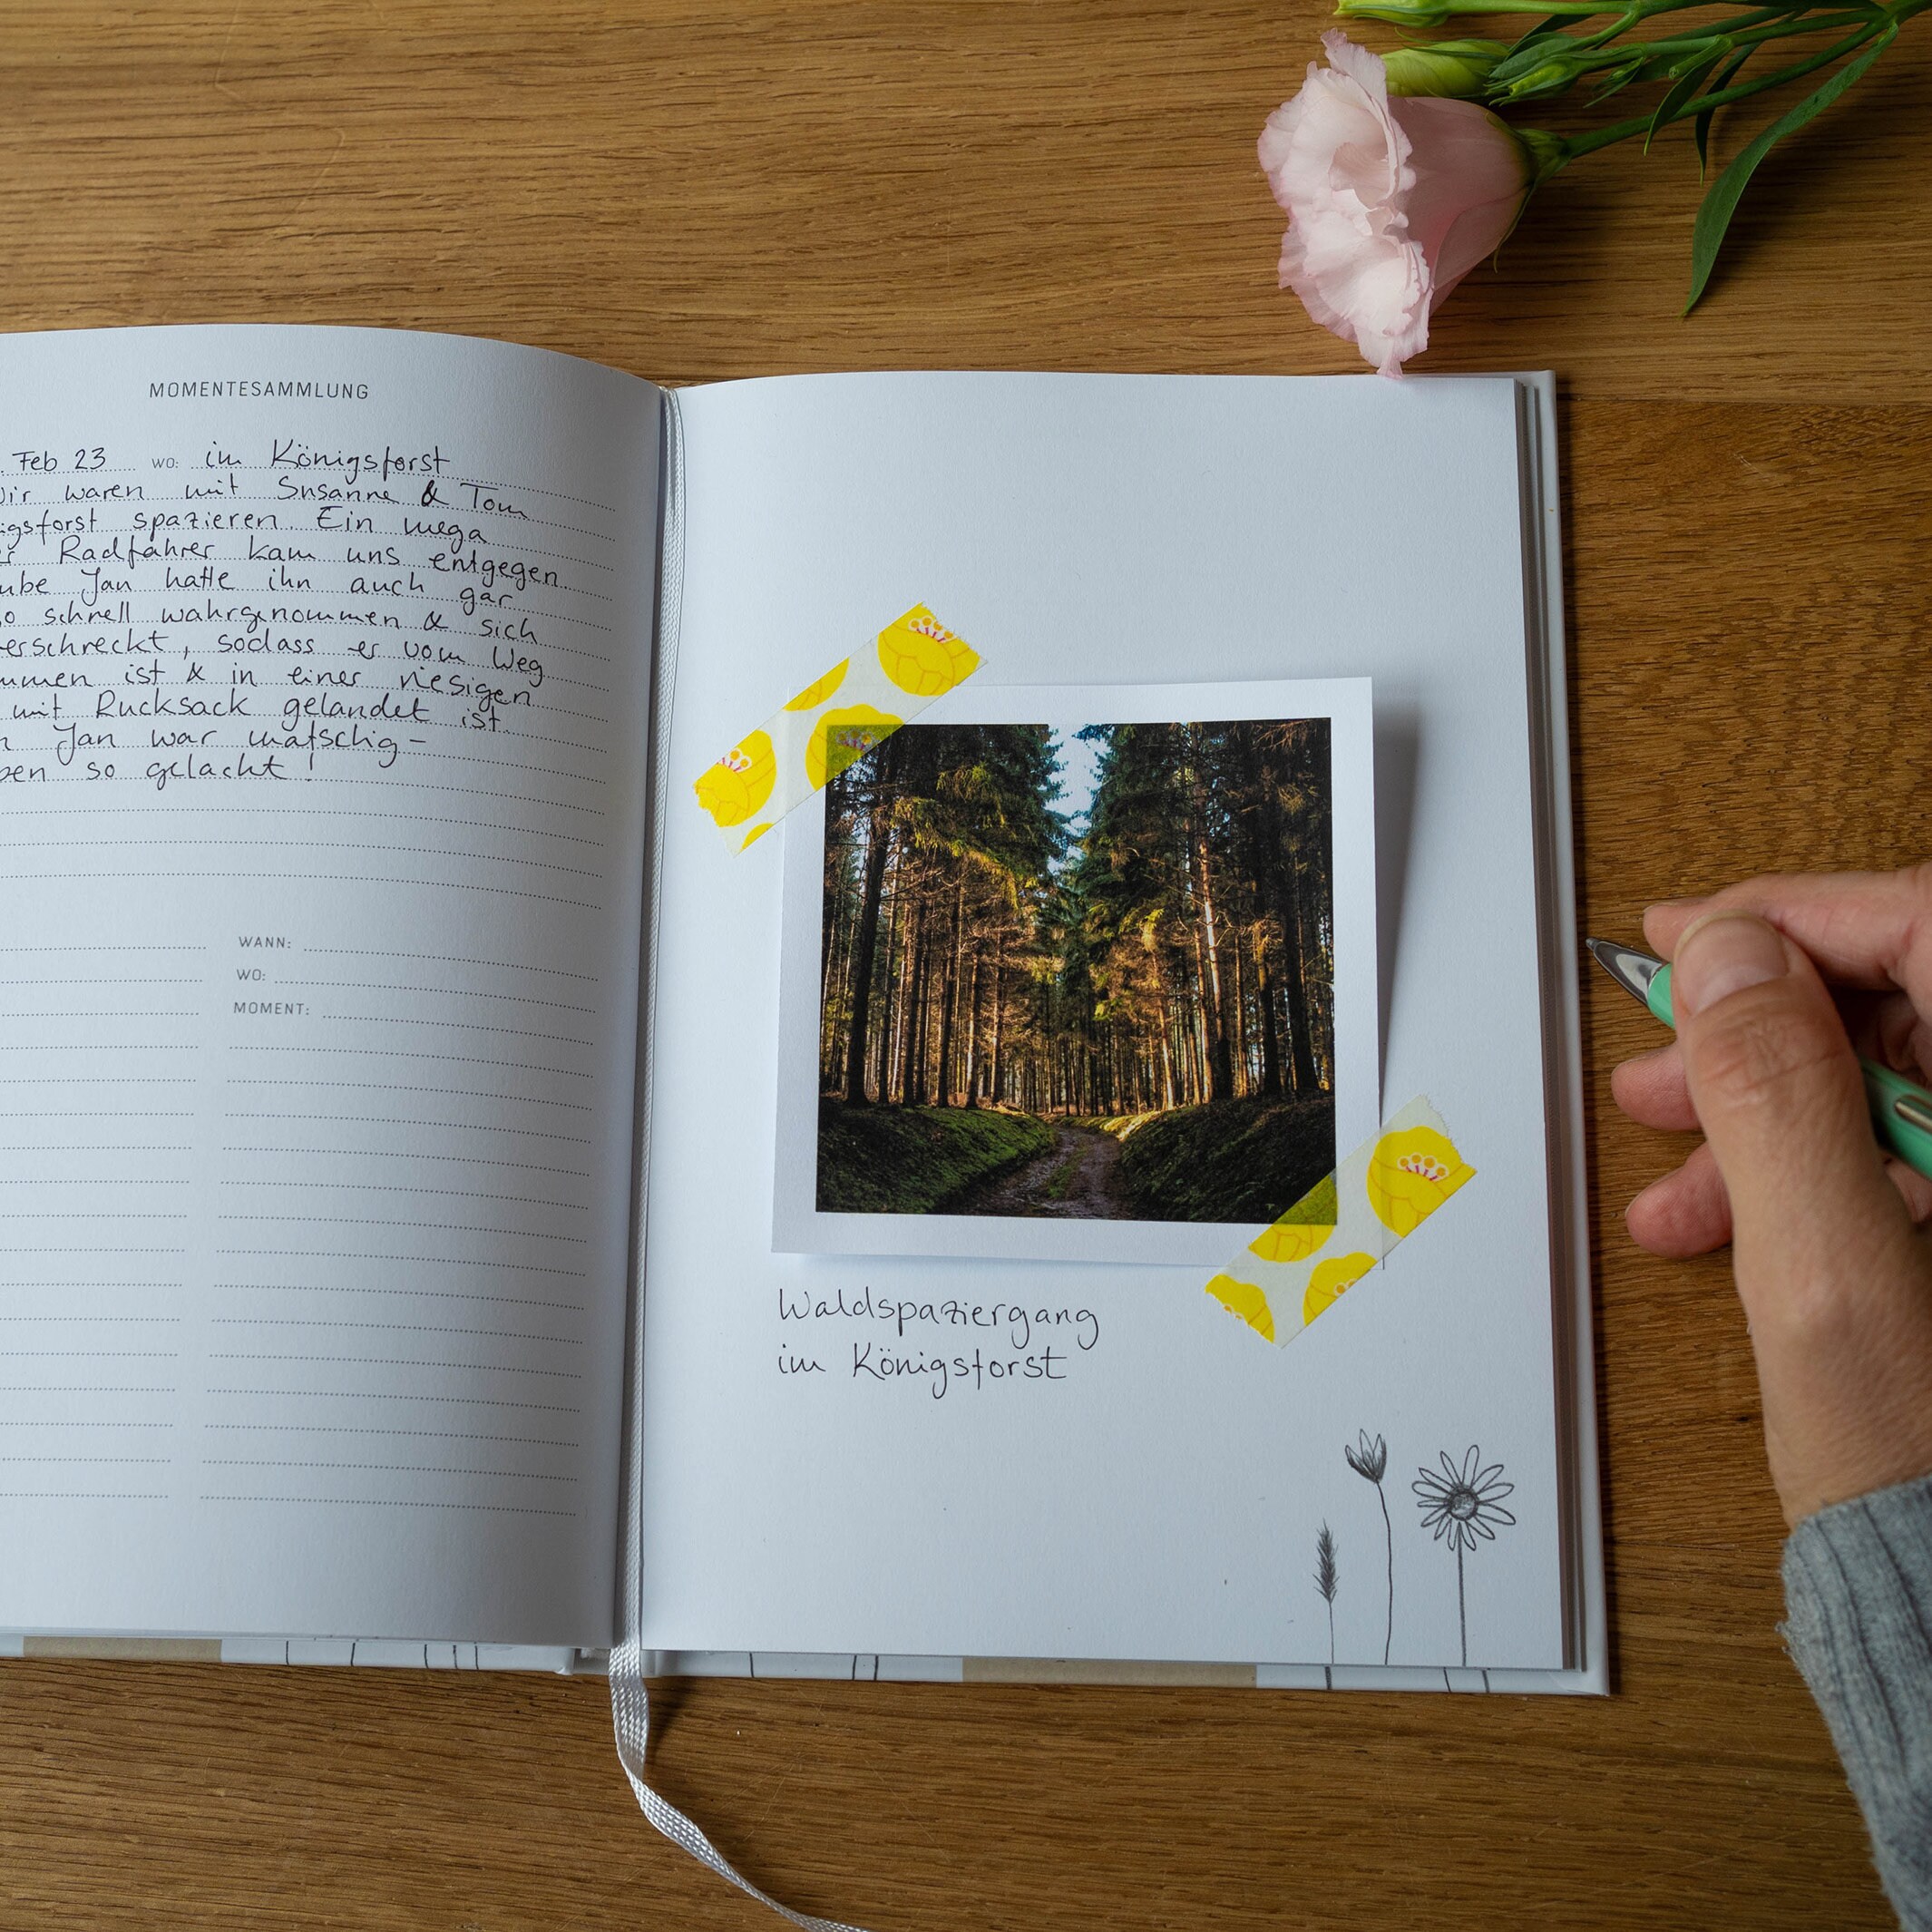 MOMENTESAMMLUNG
. Feb 23 WO: im Königsforst
Wir waren mit Susanne & Tom
igsforst spazieren. Ein mega
er Radfahrer kam uns entgegen.
ube Jan hatte ihn auch gar
so schnell wahrgenommen & sich
erschreckt, sodass er vom Weg
mmen ist & in einer riesigen
mit Rucksack gelandet ist.
n Jan war matschig –
ben so gelacht!
WANN:
WO:
MOMENT:
Waldspaziergang
im Königsforst